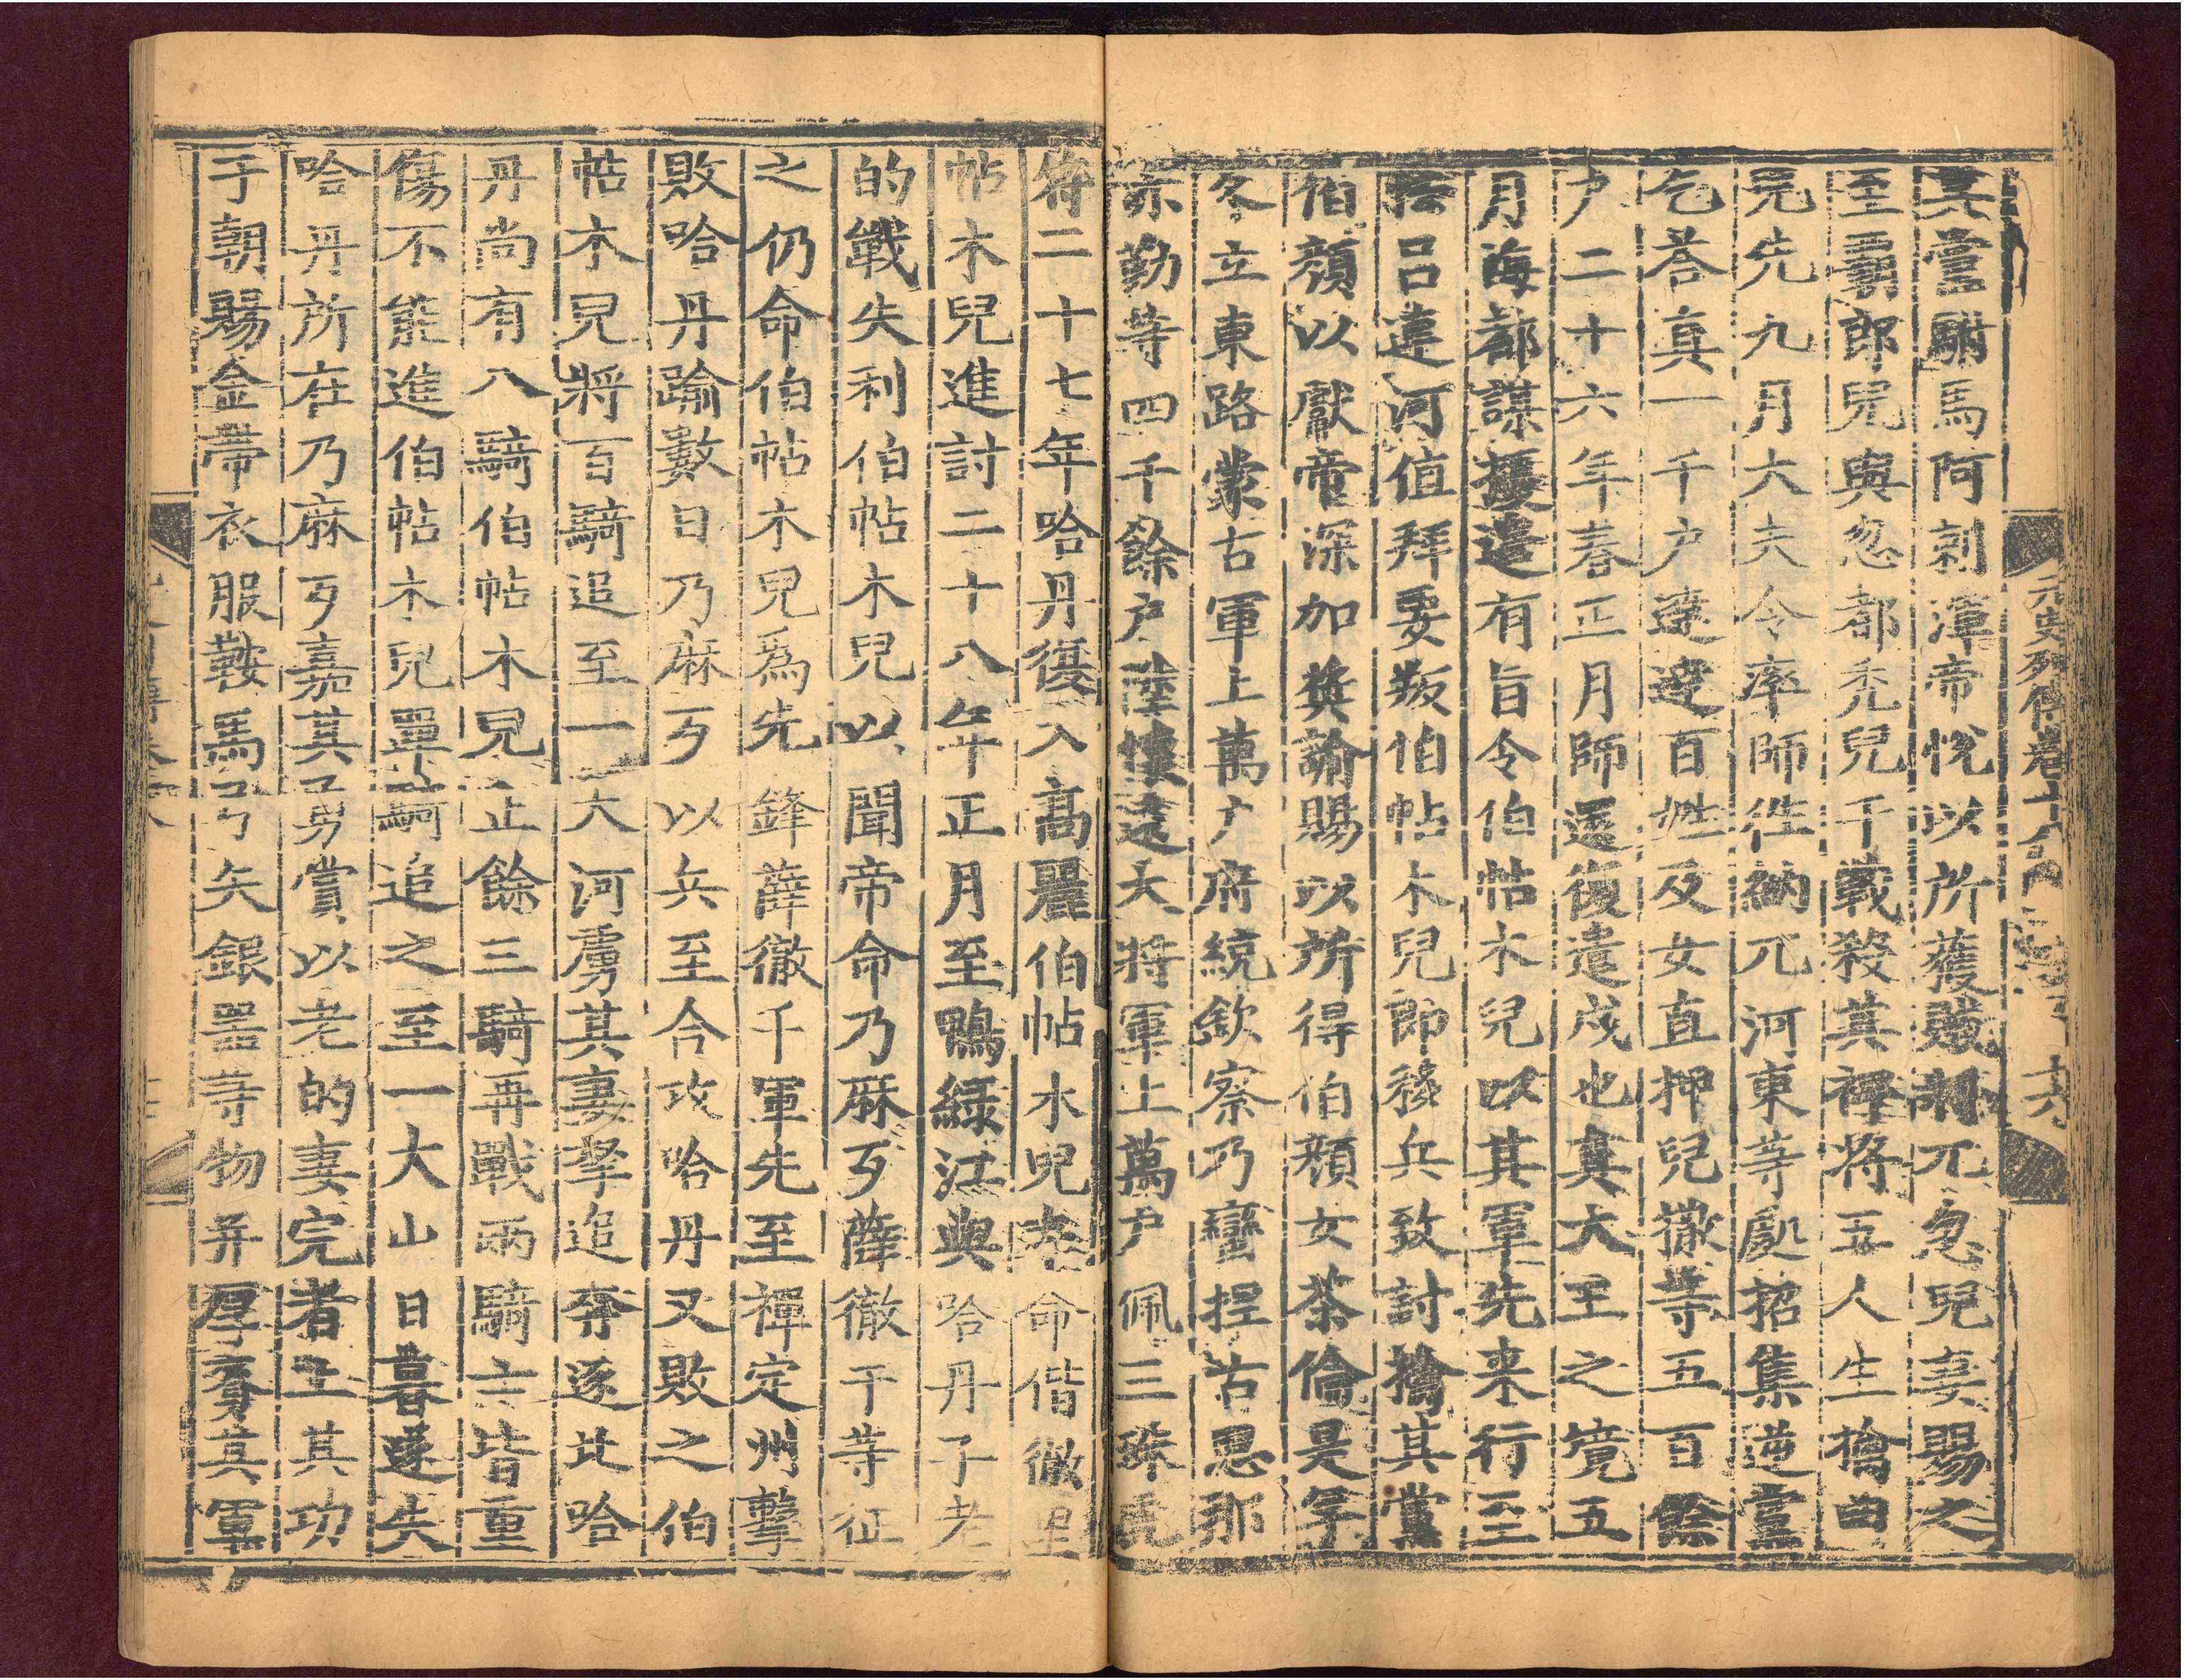 其當駙馬阿剌渾帝悅以所獲賊部兀忽兒妻賜之
至霸郎兒與忽都禿兒干戰殺其裨將五人生擒曲
兄先九月大夫令率師往納兀河東等處招集逆黨
乞荅真一千户達達百姓及女直押兒撒等五百餘
户二十六年春正月師還復遣戍也真大王之境五
月海都謀擾邊有旨令伯帖木兒以其軍先來行至
怯呂連河值拜要叛伯帖木兒即移兵致討擒其黨
伯顏以獻帝深加奬諭賜以所得伯顏女茶倫是年
冬立東路蒙古軍上萬户府統欽察乃蠻捏古思那
亦勤等四千餘户陞懷遠大將軍上萬户佩三珠虎
符二十七年哈丹復入高麗伯帖木兒奉命偕徹里
帖木兒進討二十八年正月至鴨綠江與哈丹子老
的戰失利伯帖木兒以聞帝命乃麻歹薛徹干等征
之仍命伯帖木兒爲先鋒薛徹干軍先至禪定州擊
敗哈丹踰數日乃麻歹以兵至合攻哈丹又敗之伯
帖木兒將百騎追至一大河虜其妻孥追奔逐北哈
丹尚有八騎伯帖木兒止餘三騎再戰兩騎士皆重
傷不能進伯帖木兒單騎追之至一大山日暮遂失
哈丹所在乃麻歹嘉其勇賞以老的妻完者上其功
于朝賜金帶衣服鞍馬弓矢銀器等物并厚賚其軍
元史列傳卷十八
十六